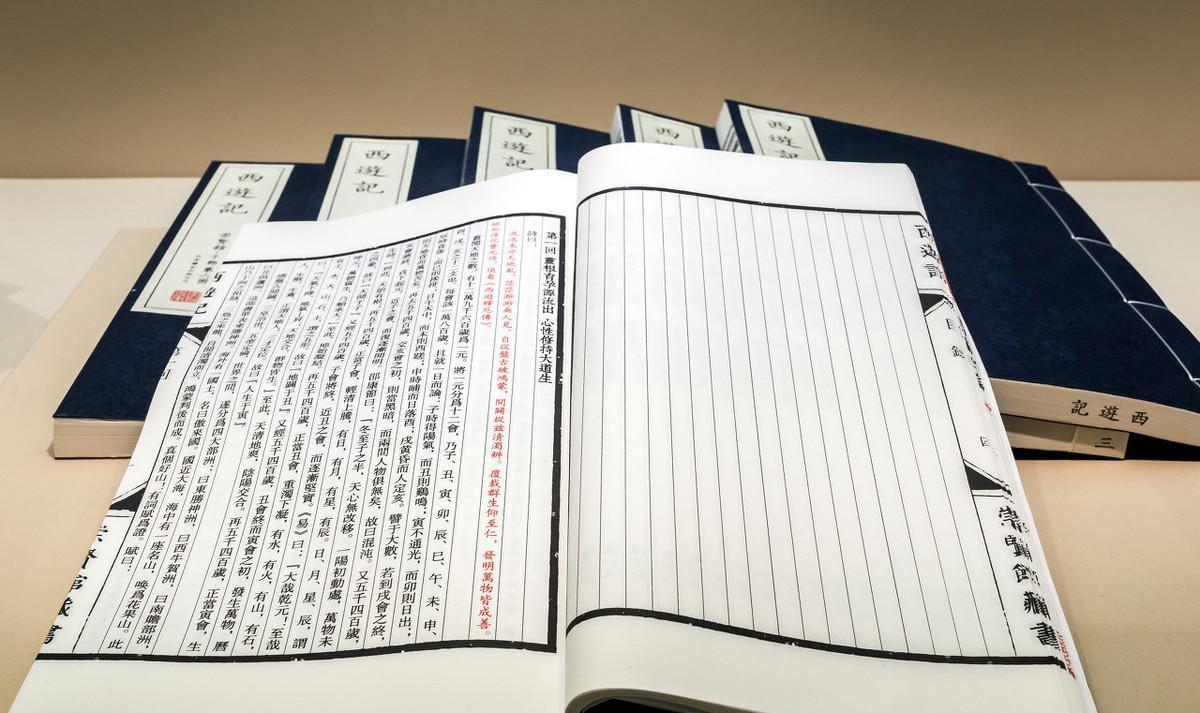 西遊記
西遊記
西遊記
西遊記
西遊記
西遊記
三
西遊記
目錄
崇賢館藏書
第一回 靈根育孕源流出 心性修持大道生
詩曰：
混沌未分天地亂，茫茫渺渺無人見。自從盤古破鴻蒙，開闢從兹清濁辨。覆載群生仰至仁，發明萬物皆成善。
欲知造化會元功，須看《西遊釋厄傳》。
蓋聞天地之數，有十二萬九千六百歲爲一元。將一元分爲十二會，乃子、丑、寅、卯、辰、巳、午、未、申、
酉、戌、亥之十二支也。每會該一萬八百歲。且就一日而論：子時得陽氣，而丑則鷄鳴；寅不通光，而卯則日出；
辰時食後，而巳則挨排；日午天中，而未則西蹉；申時晡而日落酉；戌黄昏而人定亥。譬于大數，若到戌會之終，
則天地昏曚而萬物否矣。再去五千四百歲，交亥會之初，則當黑暗，而兩間人物俱無矣，故曰混沌。又五千四百歲，
亥會將終，貞下起元，近子之會，而復逐漸開明。邵康節曰：「冬至子之半，天心無改移。一陽初動處，萬物未
生時。」到此，天始有根。再五千四百歲，正當子會，輕清上騰，有日，有月，有星，有辰。日、月、星、辰，謂
之四象。故曰，天開于子。又經五千四百歲，子會將終，近丑之會，而逐漸堅實。《易》曰：「大哉乾元！至哉
至此，地始凝結。再五千四百歲，正當丑會，重濁下凝，有水，有火，有山，有石，
有土。水、火、山、石、土，謂之五形。故曰，地闢于丑。又經五千四百歲，丑會終而寅會之初，發生萬物。曆
曰：「天氣下降，地氣上升；天地交合，群物皆生。」至此，天清地爽，陰陽交合。再五千四百歲，正當寅會，生
人，生獸，生禽，三才定位。故曰，人生于寅。
世界之間，遂分爲四大部洲：曰東勝神洲，曰西牛賀洲，曰南贍部洲，
這部書單表東勝神洲。海外有一國土，名曰傲來國。國近大海，海中有一座名山，喚爲花果山。此
島之來龍，自開清濁而立，鴻蒙判後而成。真個好山！有詞賦爲證。賦曰：
西遊記
第一回
崇賢館藏書